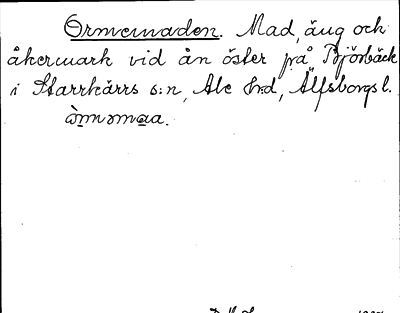 Ormemaden. Mad, äng och
åkermark vid ån öster på Björbäck
i Starrkärrs s:n, Ale h:d, Älfsborgs l.